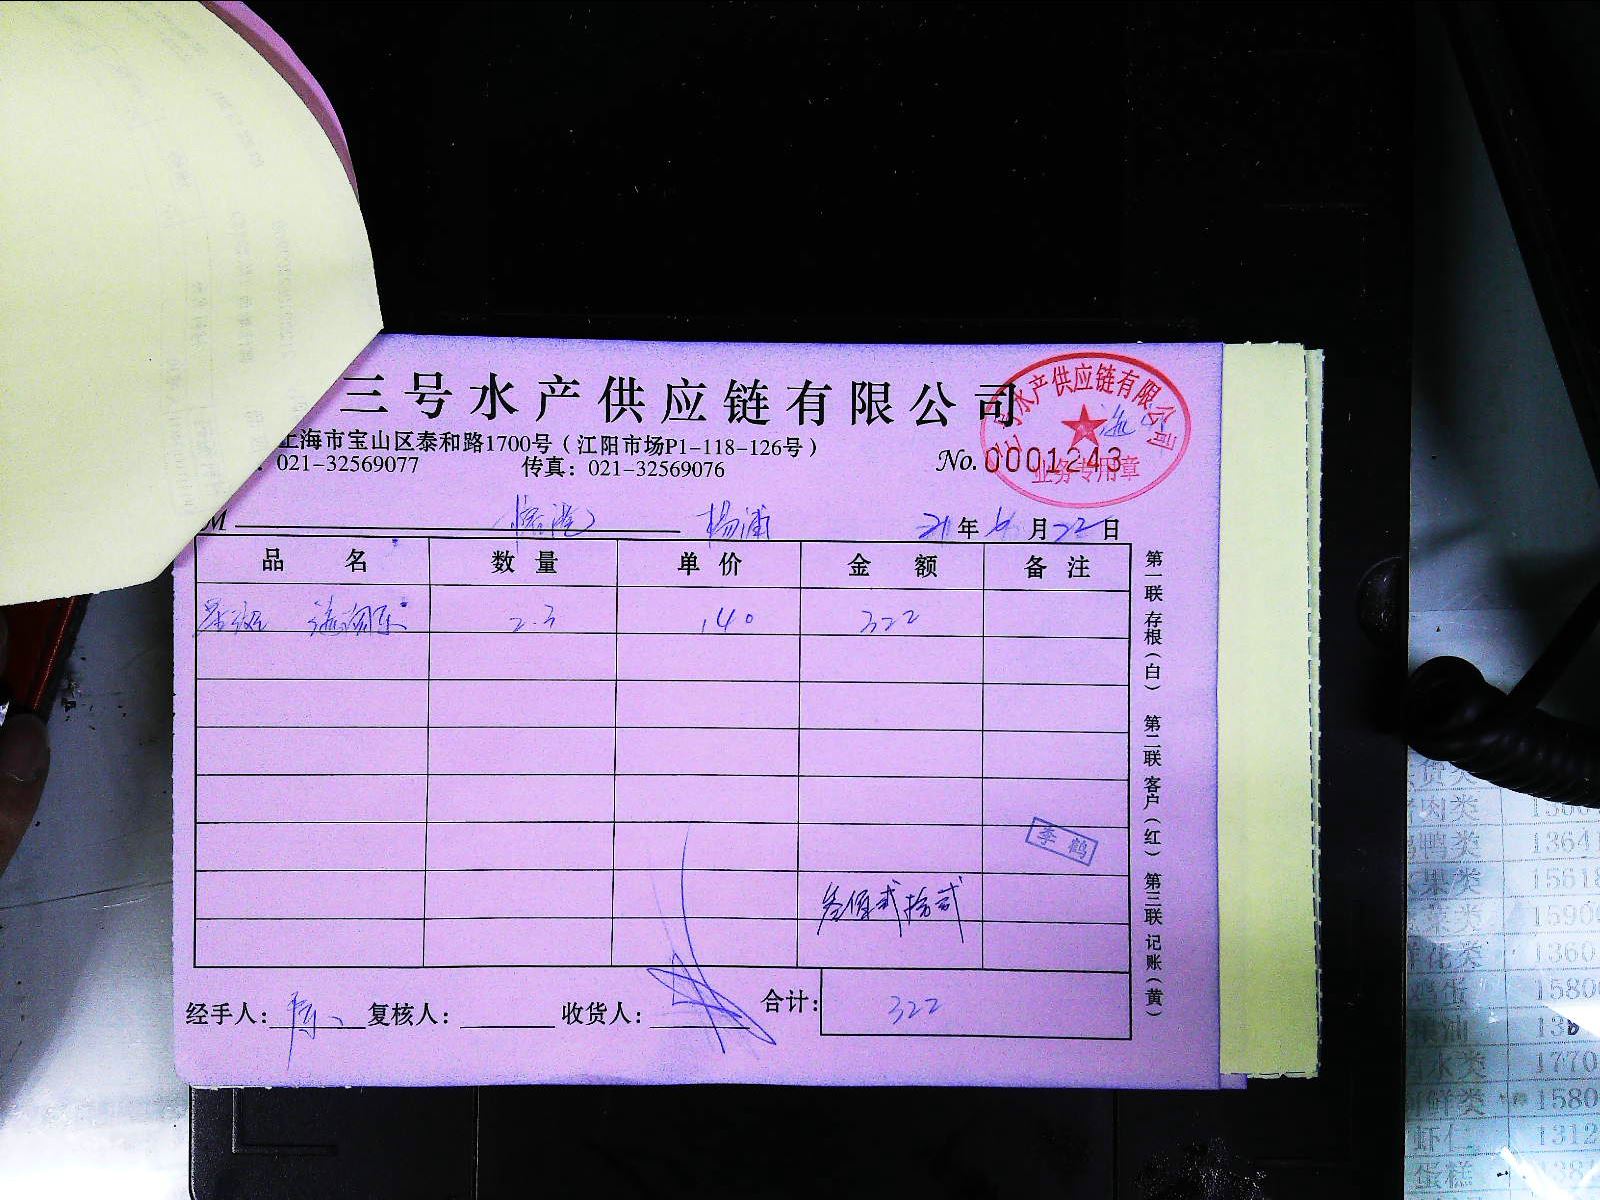 三号水产供应链有限公司
三号水产供应链有限公司
业务专用章
上海市宝山区泰和路1700号（江阳市场P1-118-126号）
021-32569077 传真：021-32569076 No.0001243
M 杨浦 21年4月22日
品名 数量 单价 金额 备注
2.3 140 322
李鹤
叁佰贰拾贰
经手人： 复核人： 收货人： 合计： 322
第一联 存根（白） 第二联 客户（红） 第三联 记账（黄）
肉类 1360
鸭类 13641
果类 15618
菜类 1590
花类 1360
鸡蛋 1580
油 13
水类 1770
鲜类 1580
虾仁 1312
蛋糕 138